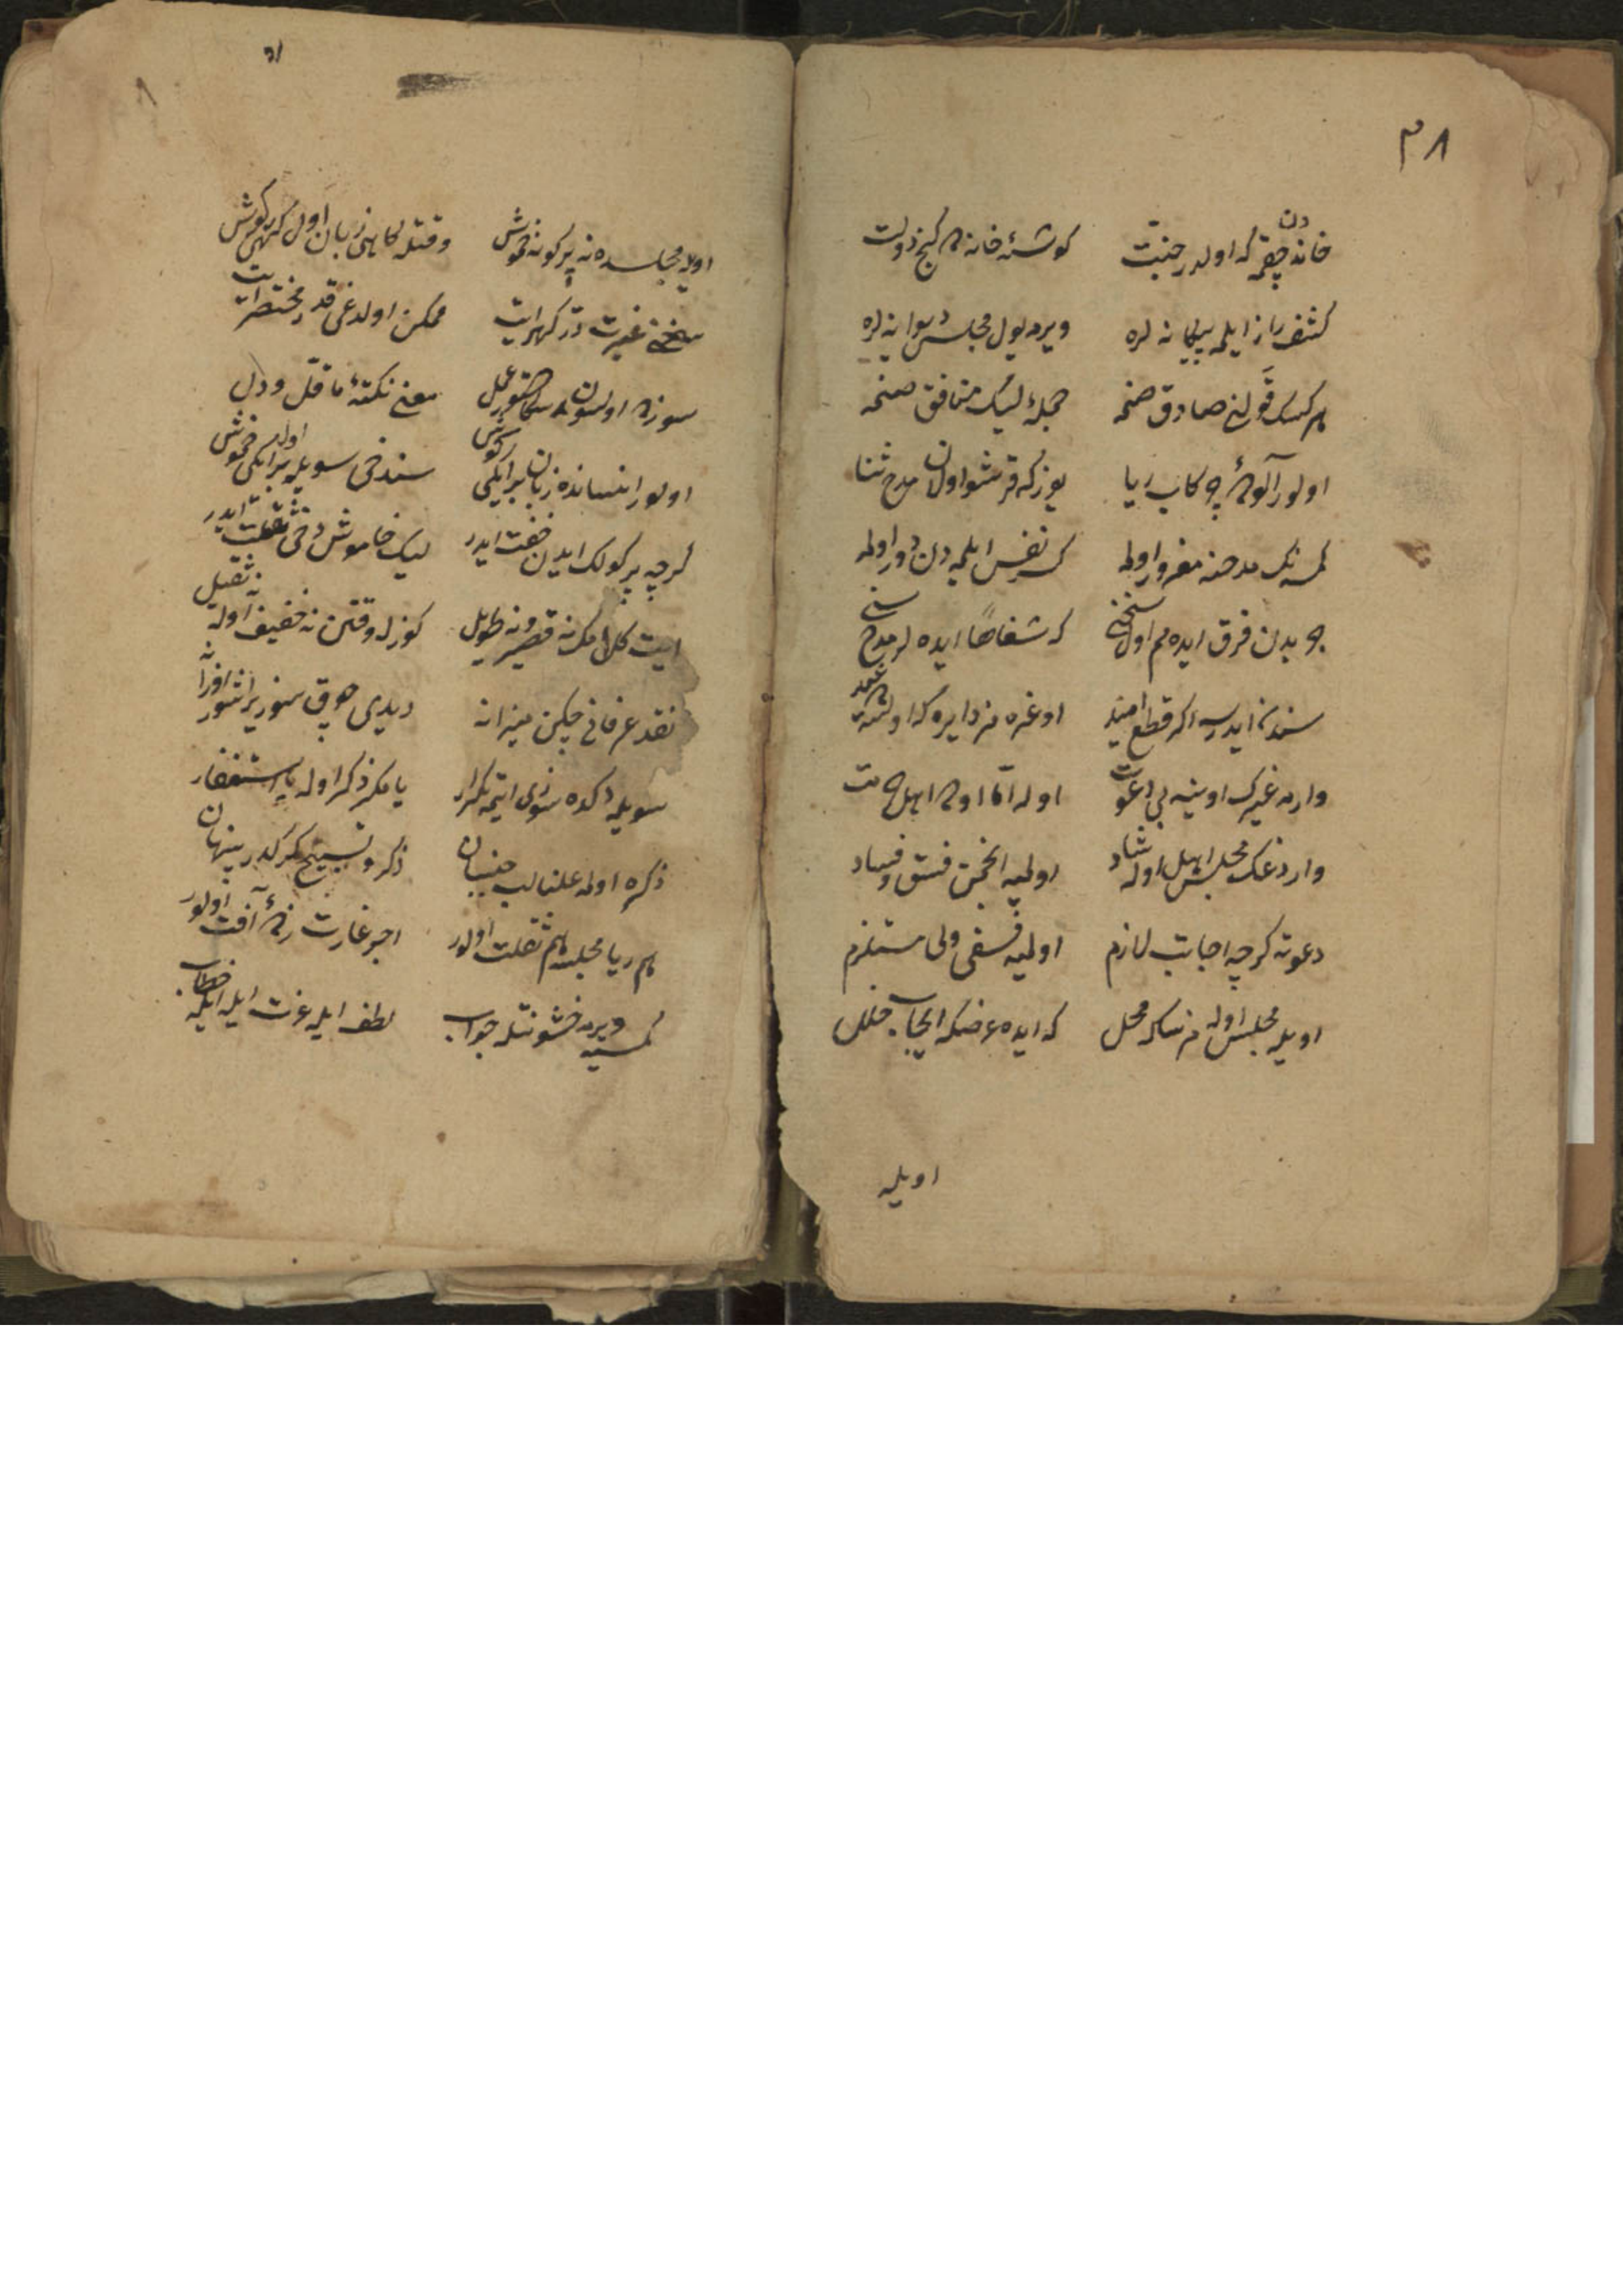 ٣٨
خانه‌دن چقمه که اولدر جنت کوشۀ خانه در کنج دولت
کشف راز ایلمه بیکانه لره ویرمه یول مجلسه دیوانه لره
هر کسک قولنی صادق صنمه جمله‌ء لیک منافق صنمه
اولور آلوده ریا یوزکه قرشو اولان مدح ثنا
کمسه‌نک مدحنه مغرور اولمه کسر نفس ایلمه‌دن دور اولمه
فرق ایده‌م اول سخنی که شفاها ایده لر مدح سنی
سندن ایدرسه اکر قطع امید اوغره مز دایره که
وارمه غیرک اوینه بی دعوت اوله اما اوده اهل
واردغک مجلس اهلی اوله شاد اولمیه انجمن فسق و فساد
دعوته کرچه اجابت لازم اولمیه فسقی ولی مستلزم
اویله مجلس اوله مز سکا محل که ایده عرضکه ایجاب خلل
اویله
اویله مجلسده نه پر کو نه خموش وقتله کاهی زبان اول کهی کوش
سخنی غیرت در کهر ایت ممکن اولدغی قدر مختصر ایت
سوزده اولسون سکا دستور عمل معنی نکتۀ ما قل و دل
اولور انسانده زبان بر ایکی کوش سندخی سویله بر ایکی اول خموش
کرچه پر کولک ایدن خفت ایدر لیک خاموش دخی ثقلت ایدر
ایت کلامک نه قصیر و نه طویل کوزله وقتن نه خفیف اوله نه ثقیل
نقد عرفانی چکن میزانه
سویلمه دکده سوزی ایتمه تکرار یا مکر ذکر اوله یا استغفار
ذکره اولمه علنا لب جنبان ذکر و تسبیح کرکدر پنهان
هم ریا مجلسه هم ثقلت اولور اجر غارت زدۀ آفت اولور
کمسیه ویرمه خشونتله جواب لطف ایله عزت ایله ایله خطاب